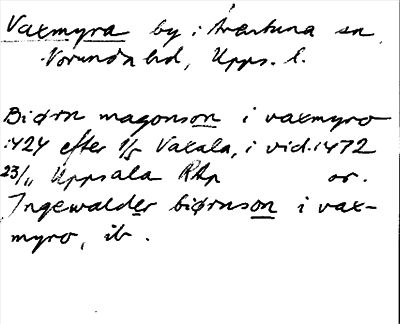 Vaxmyra by i Ärentuna sn,
Norunda hd, Upps. l.
Biørn magonson i vaxmyro
1424 efter 1/5 Vaxala, i vid. 1472
23/11 Uppsala RAp or.
Ingewalder biørnson i vax-
myro, ib.